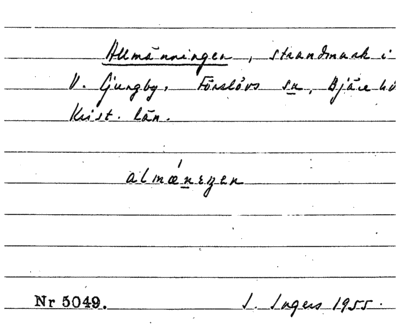 Allmänningen, strandmark i
V. Ljungby, Förslövs sn, Bjäre hd
Krist. län.
almǽnɛŋen
Nr 5049. I. Ingers 1955.